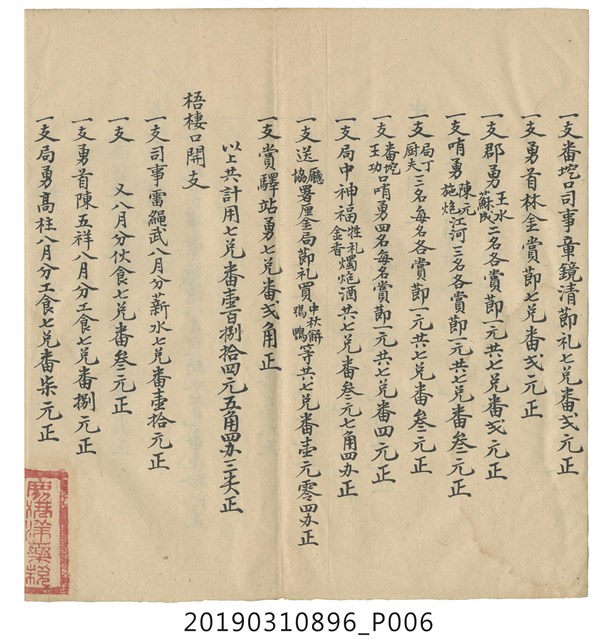 一支番挖口司事章鏡清節礼七兑番弍元正
一支勇首林金賞節七兑番弍元正
一支郡勇王水蘇成二名各賞節一元共七兑番弍元正
一支哨勇陳元施炮江河三名各賞節一元共七兑番叁元正
一支局丁厨夫三名每名各賞節一元共七兑番叁元正
一支番挖王功口哨勇四名每名賞節一元共七兑番四元正
一支局中神福牲礼燭炮金香酒共七兑番叁元七角四办正
一支送廳協署厘金局節礼買中秋餅鷄鴨等共七兑番壹元零四办正
一支賞驛站勇七兑番弍角正
以上共計用七兑番壹百捌拾四元五角四办三尖正
梧棲口開支
一支司事雷繩武八月分薪水七兑番壹拾元正
一支 又八月分伙食七兑番叁元正
一支勇首陳五祥八月分工食七兑番捌元正
一支局勇高柱八月分工食七兑番柒元正
20190310896_P006